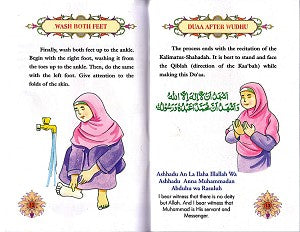 WASH BOTH FEET
Finally, wash both feet up to the ankle.
Begin with the right foot, washing it from
the toes up to the ankle. Then, do the same
with the left foot. Give attention to the
folds of the skin.
DUAA AFTER WUDHU
The process ends with the recitation of the
Kalimatus-Shahadah. It is best to stand and face
the Qiblah (direction of the Kaa'bah) while
making this Du'aa.
أَشْهَدُ أَنْ لَا إِلَهَ إِلَّا اللهُ
وَأَشْهَدُ أَنَّ مُحَمَّدًا عَبْدُهُ وَرَسُولُهُ
Ashhadu An La Ilaha Illallah Wa
Ashhadu Anna Muhammadan
Abduhu wa Rasuluh
I bear witness that there is no deity
but Allah. And I bear witness that
Muhammad is His servant and
Messenger.